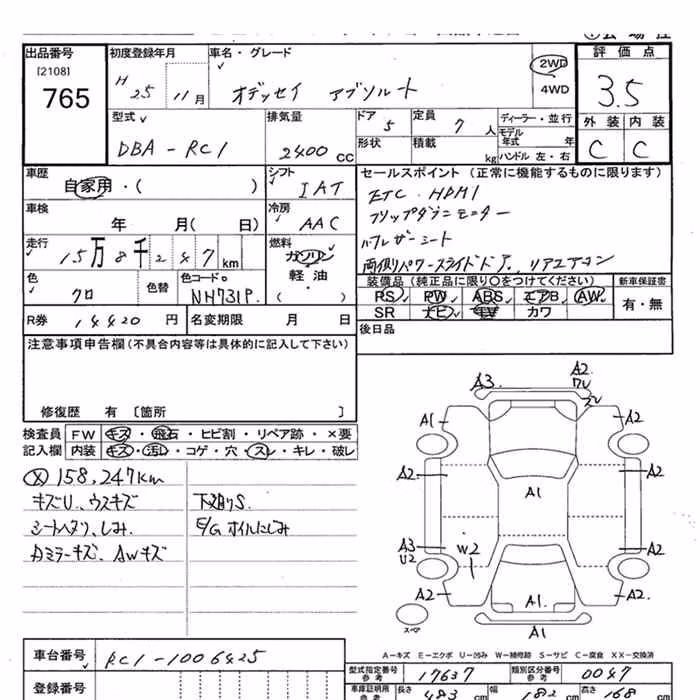 出品番号
[2108]
765
初度登録年月
H 25 11月
車名・グレード
オデッセイ アブソルート
2WD
4WD
評価点
3.5
外装 内装
C C
型式
DBA-RC1
排気量
2400 cc
ドア 5
定員 7 人
形状
積載 kg
ディーラー・並行
モデル年式 年
ハンドル 左・右
車歴
自家用・( )
シフト
IAT
セールスポイント (正常に機能するものに限ります)
ETC. HDMI
フリップダウンモニター
ハーフレザーシート
両側パワースライドドア、リアエアコン
車検
年 月( 日)
冷房
AAC
走行
15万8千247km
燃料
ガソリン
軽油
( )
色
クロ
色替
色コードNo
NH731P
装備品 (純正品に限り○をつけてください)
PS PW ABS エアB AW
SR ナビ TV カワ
新車保証書
有・無
R券 14420 円
名変期限 月 日
後日品
注意事項申告欄(不具合内容等は具体的に記入して下さい)
修復歴 有 [箇所 ]
検査員記入欄
FW キズ・飛石・ヒビ割・リペア跡・×要
内装 キズ・汚レ・コゲ・穴・スレ・キレ・破レ
158,247km
キズU、ウスキズ
シートヘタリ、しみ
カミラーキズ、AWキズ
下廻りS
E/Gオイルにじみ
A3 A2
ワレ
ズレ
A1 A2
A2 A1 A2
A3 U2 W2 A2
A2 A1 A2
スペア
A1
A-キズ E-エクボ U-凹み W-補修跡 S-サビ C-腐食 XX-交換済
車台番号 RC1-1006425
型式指定番号 参考 17637
類別区分番号 参考 0047
登録番号
車庫証明用 参考 長さ 483 cm 幅 182 cm 高さ 168 cm